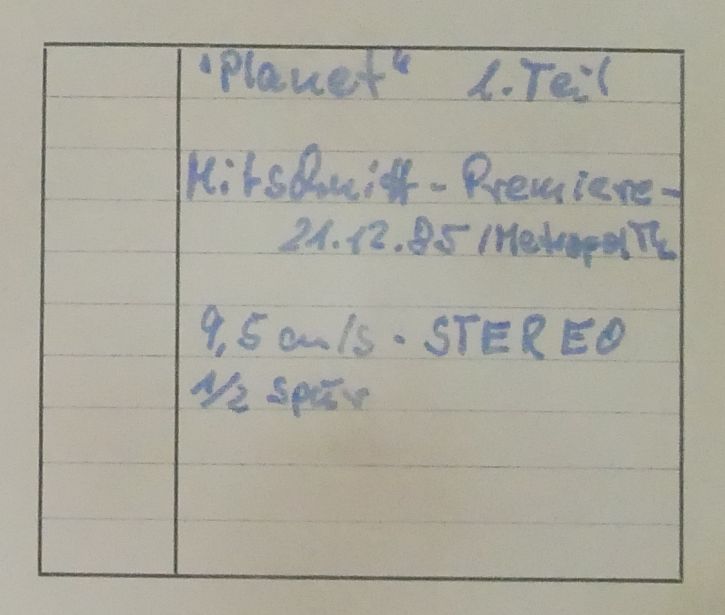 "Planet" 1. Teil
Mitschnitt - Premiere -
21.12.85 / Metropol Th.
9,5 cm/s · STEREO
1/2 Spur